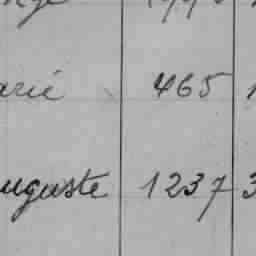 arié 465
uguste 1237 3